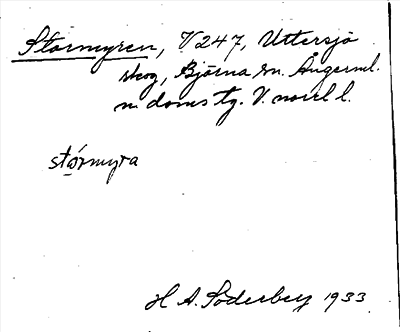 Stormyren, V247, Uttersjö
skog, Björna sn. Ångerml.
n. doms tg. V. norrl l.
stórmyra
H A. Söderberg 1933